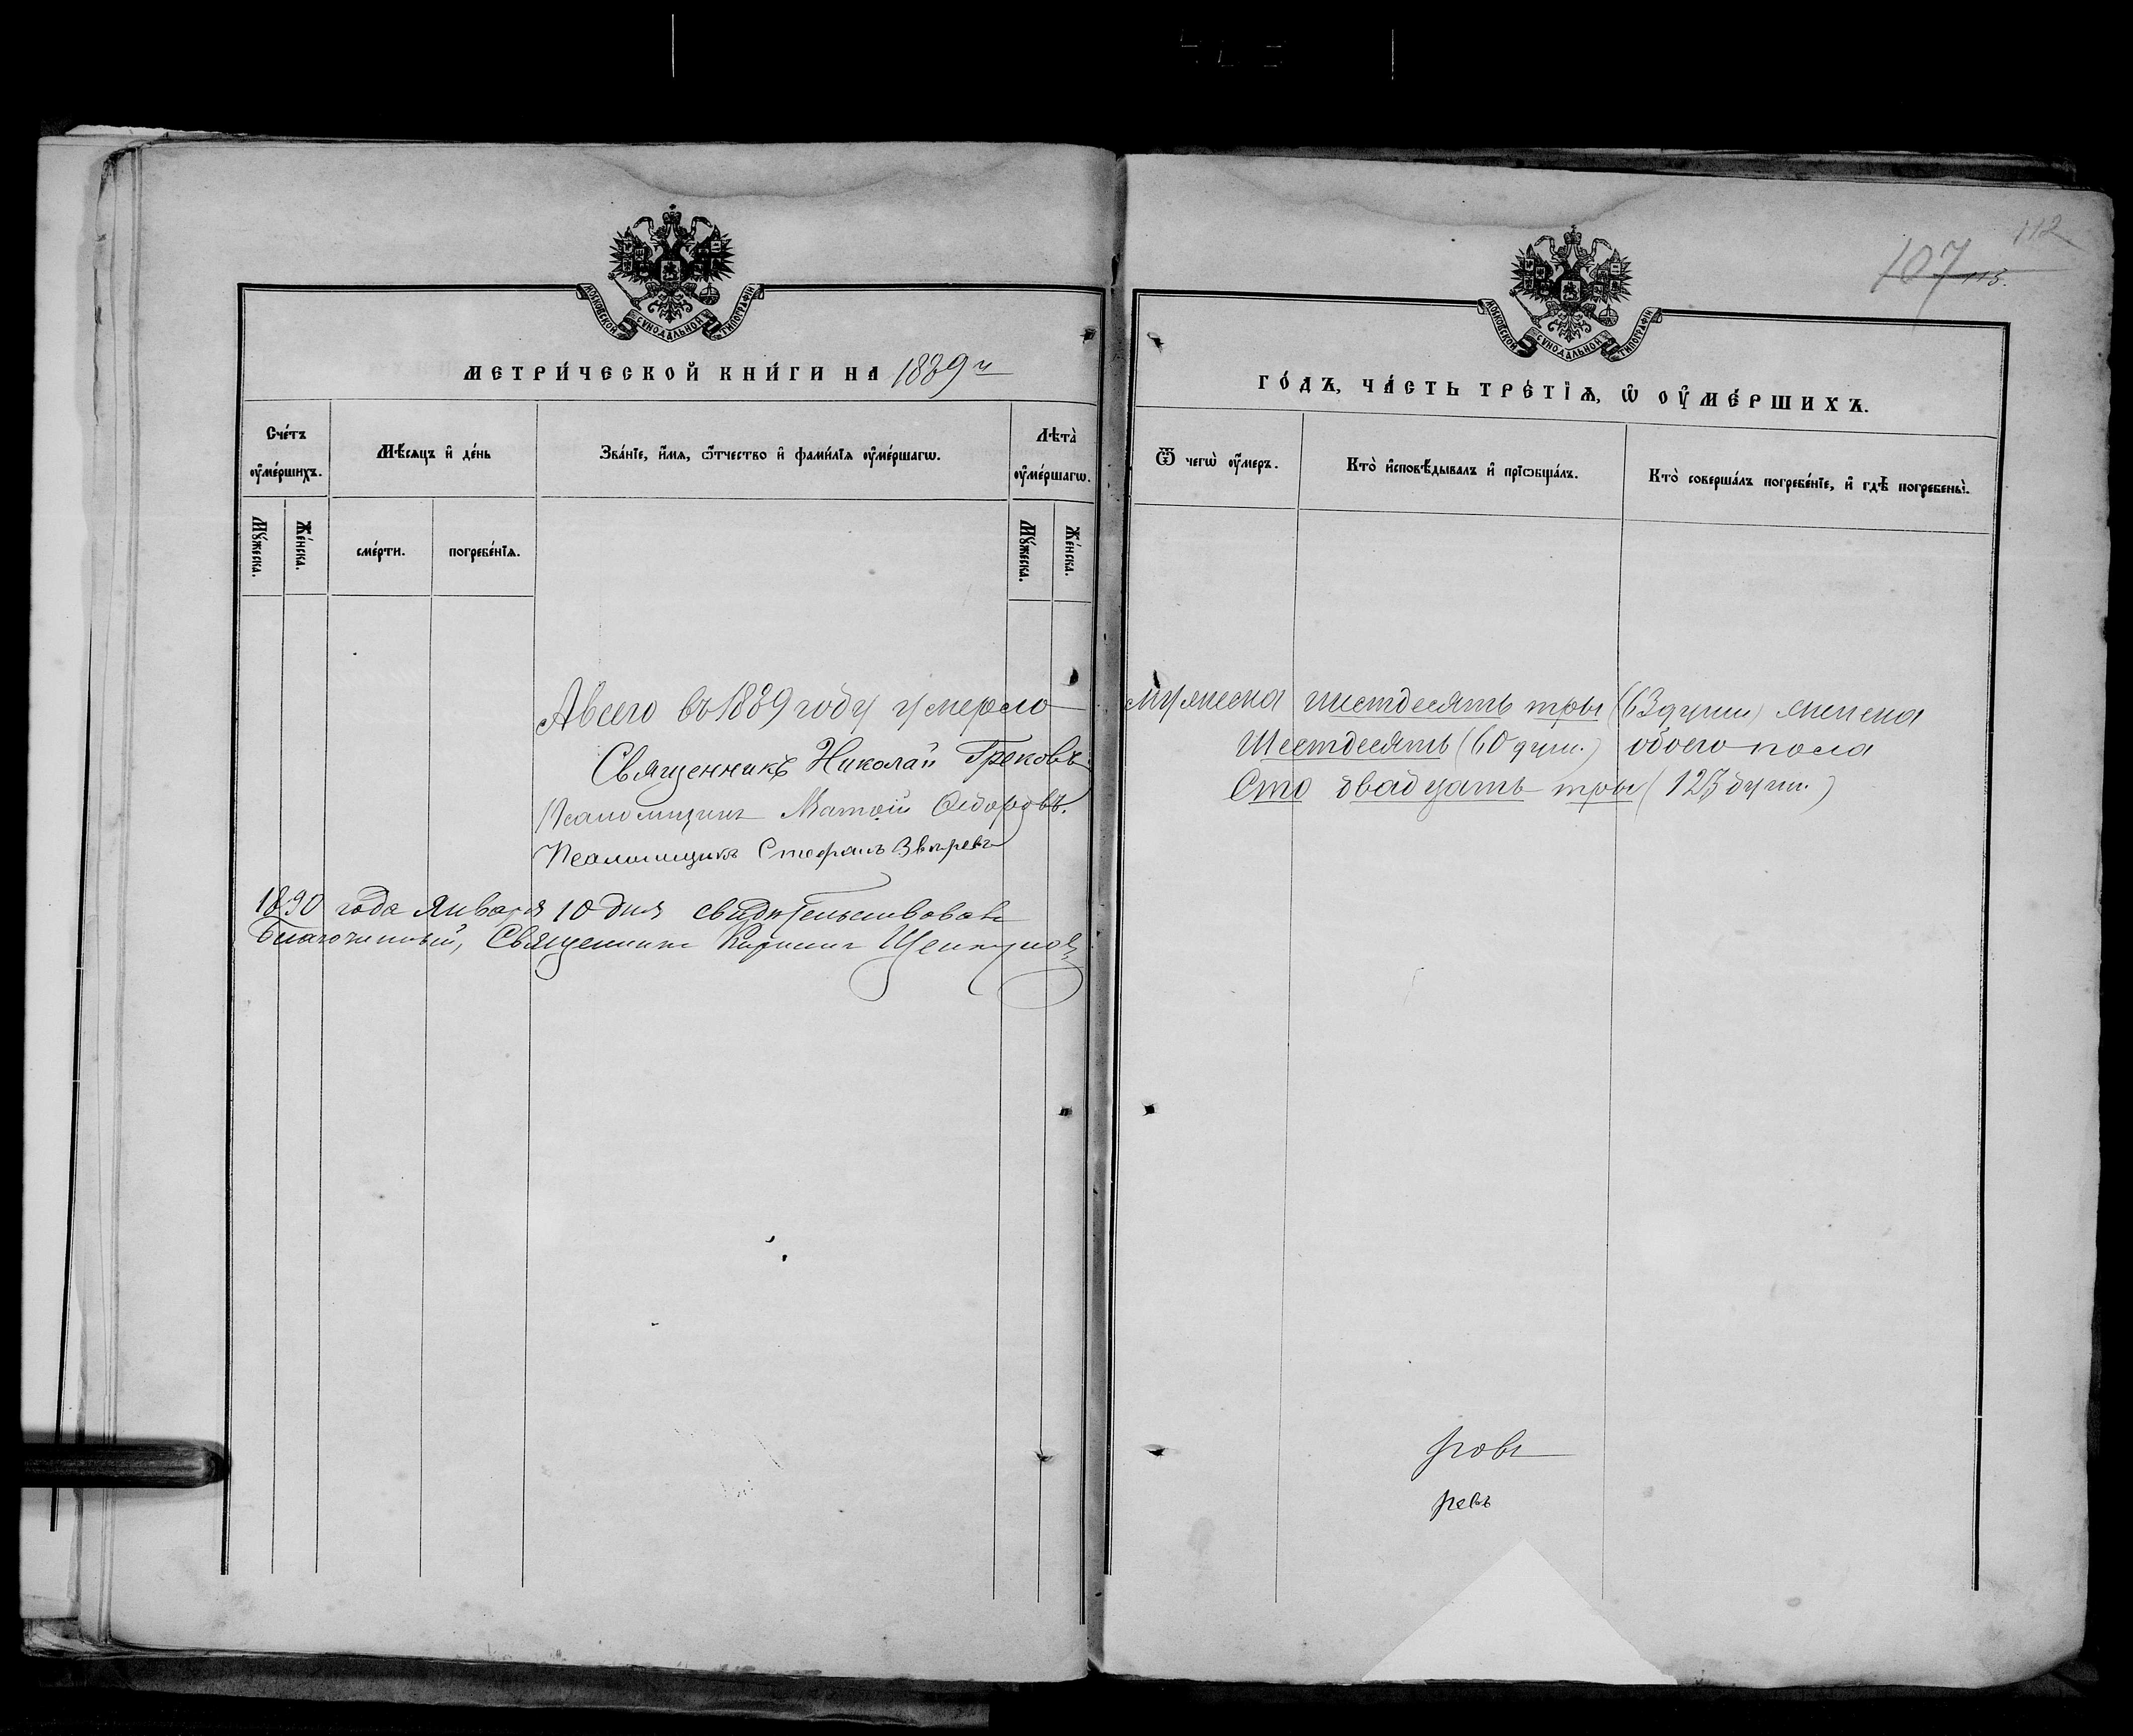 МОСКОВСКОЙ СѴНОДАЛЬНОЙ ТИПОГРАФІИ
МЕТРИ́ЧЕСКОЙ КНИ́ГИ НА 1889 г
Сче́тъ ᲂу҆ме́ршихъ.
Мѣ́сяцъ и҆ де́нь
Зва́нїе, и҆́мя, ѻ҆́тчество и҆ фами́лїя ᲂу҆ме́ршагѡ.
Лѣта̀ ᲂу҆ме́ршагѡ.
Мꙋ́жеска.
Же́нска.
сме́рти.
погребе́нїѧ.
Мꙋ́жеска.
Же́нска.
А всего въ 1889 году умерло
Священникъ Николай Грековъ
Псаломщикъ Матѳій Ѳедоровъ.
Псаломщикъ Стефанъ Звѣревъ
1890 года Января 10 дня свидѣтельствовалъ
Благочинный, Священникъ
МОСКОВСКОЙ СѴНОДАЛЬНОЙ ТИПОГРАФІИ
112
107 113.
ГО́ДЪ, ЧА́СТЬ ТРЕ́ТЇѦ, Ѡ҆ ОУ҆МЕ́РШИХЪ.
Ѿ чегѡ̀ ᲂу҆́меръ.
Кто̀ и҆сповѣ́дывалъ и҆ прїѡбща́лъ.
Кто̀ соверша́лъ погребе́нїе, и҆ гдѣ̀ погребены̀.
мужеска шестдесять три (63 души) женска
Шестдесять (60 душ.) обоего пола
Сто двадцать три (123 душ.)
ровъ
ревъ